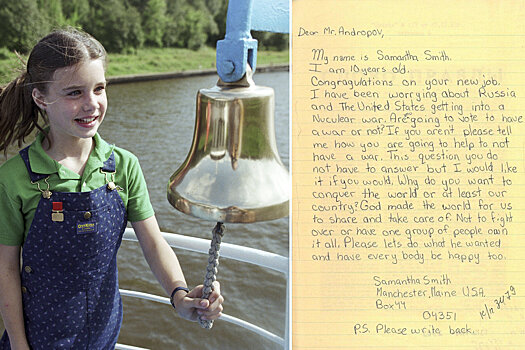 Dear Mr. Andropov,
My name is Samantha Smith.
I am 10 years old.
Congragulations on your new job.
I have been worrying about Russia
and The United States getting into a
Nuculear war. Are going to vote to have
a war or not? If you aren't please tell
me how you are going to help to not
have a war. This question you do
not have to answer but I would like
it if you would. Why do you want to
conquer the world or at least our
country? God made the world for us
to share and take care of. Not to fight
over or have one group of people own
it all. Please lets do what he wanted
and have every body be happy too.
Samantha Smith
Manchester, Maine U.S.A.
Box 44
04351
P.S. Please write back.